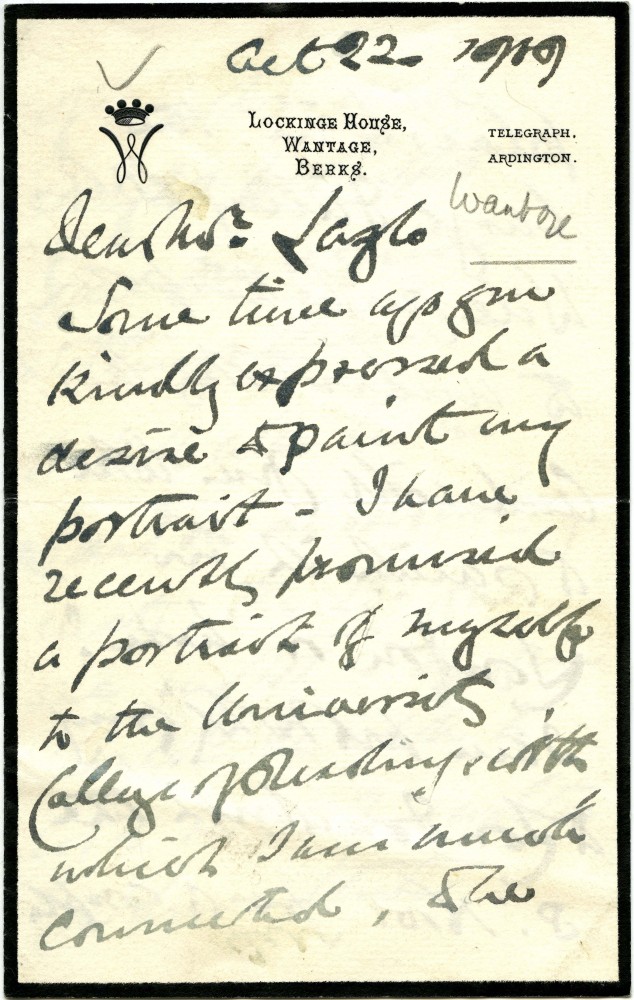 Oct 22. 1919
W
LOCKINGE HOUSE,
WANTAGE,
BERKS.
TELEGRAPH,
ARDINGTON.
Wantage
Dear Mr. Lazlo
Some time ago you
kindly expressed a
desire to paint my
portrait - I have
recently promised
a portrait of myself
to the University
College of Reading, with
which I am much
connected, The